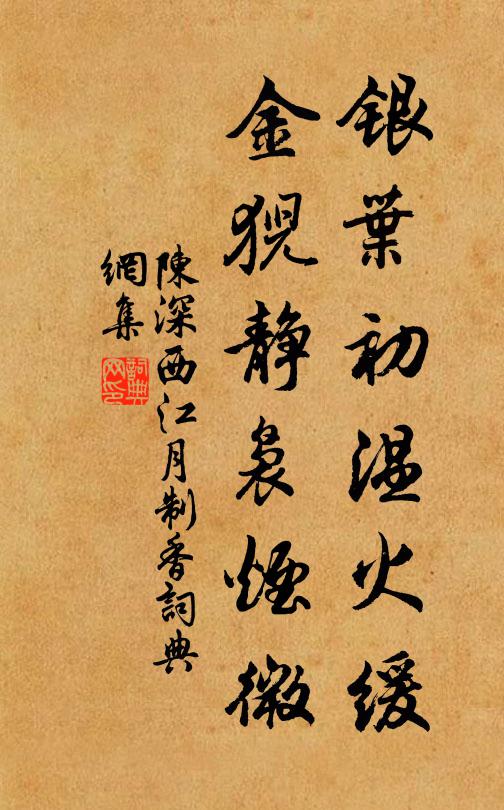 銀葉初温火緩
金猊靜裊煙微
陳深西江月制香詞典
網集
詞典
网印